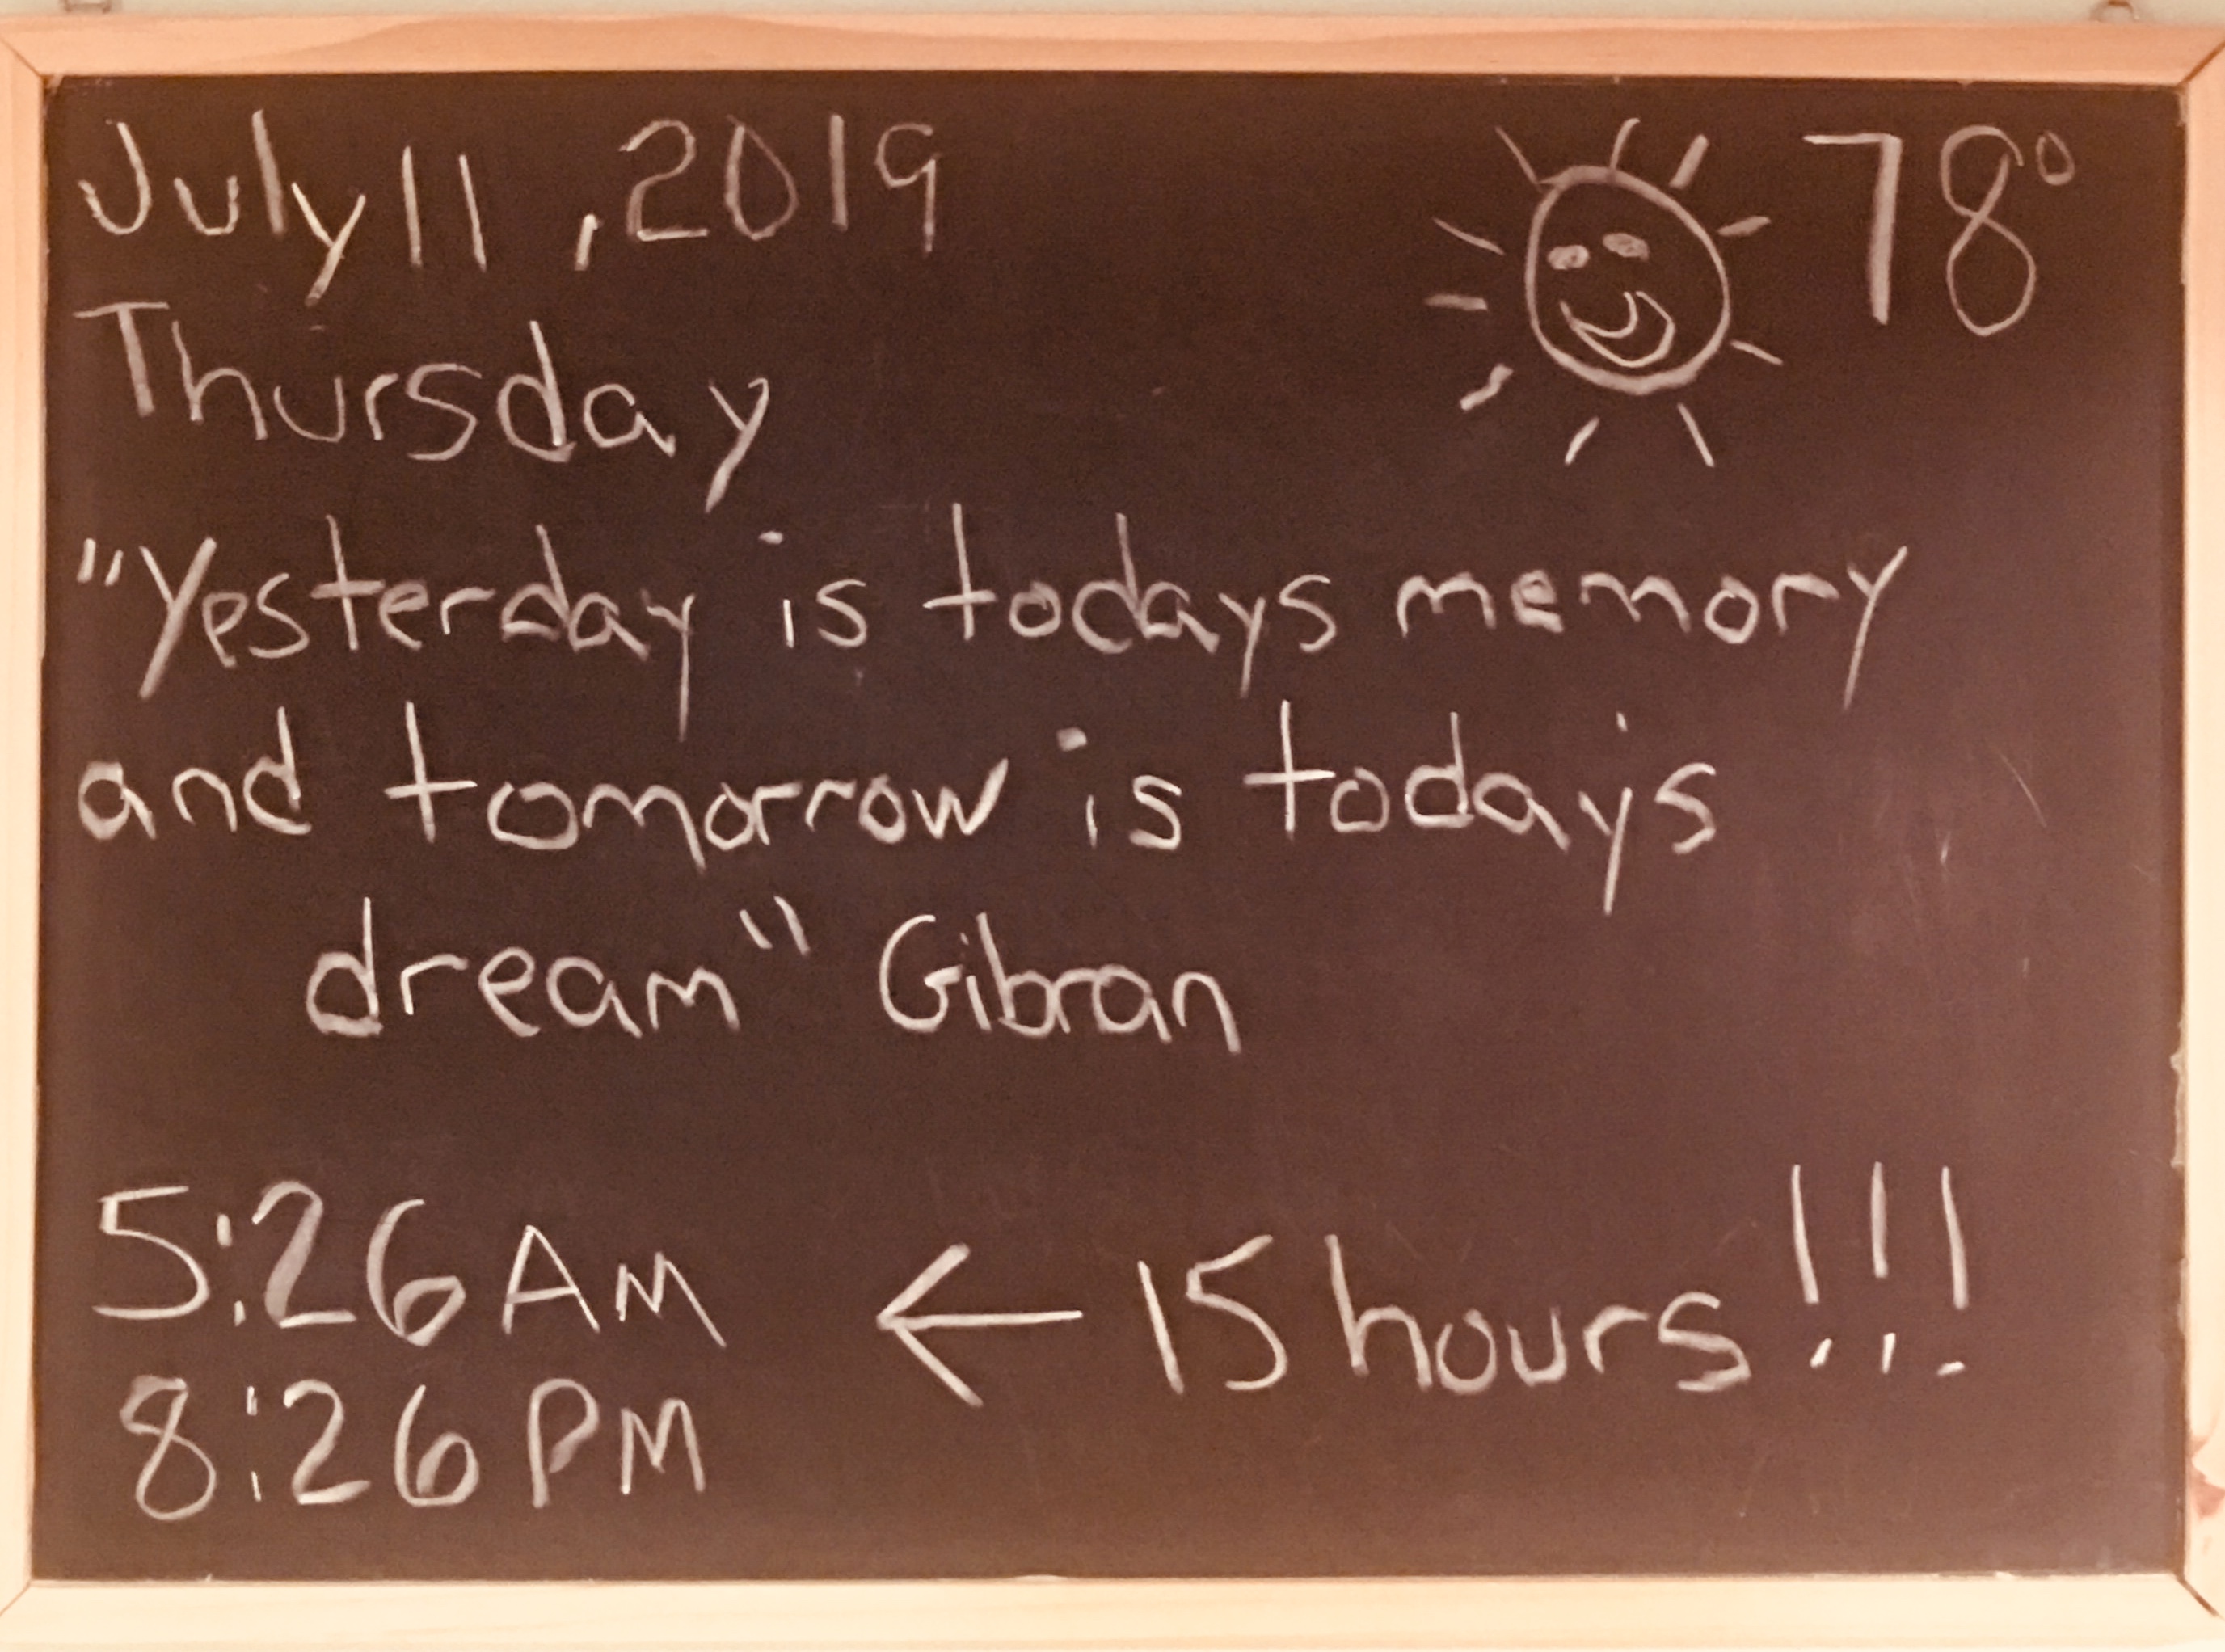 July 11, 2019 78°
Thursday
"Yesterday is todays memory
and tomorrow is todays
dream" Gibran
5:26 AM ← 15 hours!!!
8:26 PM